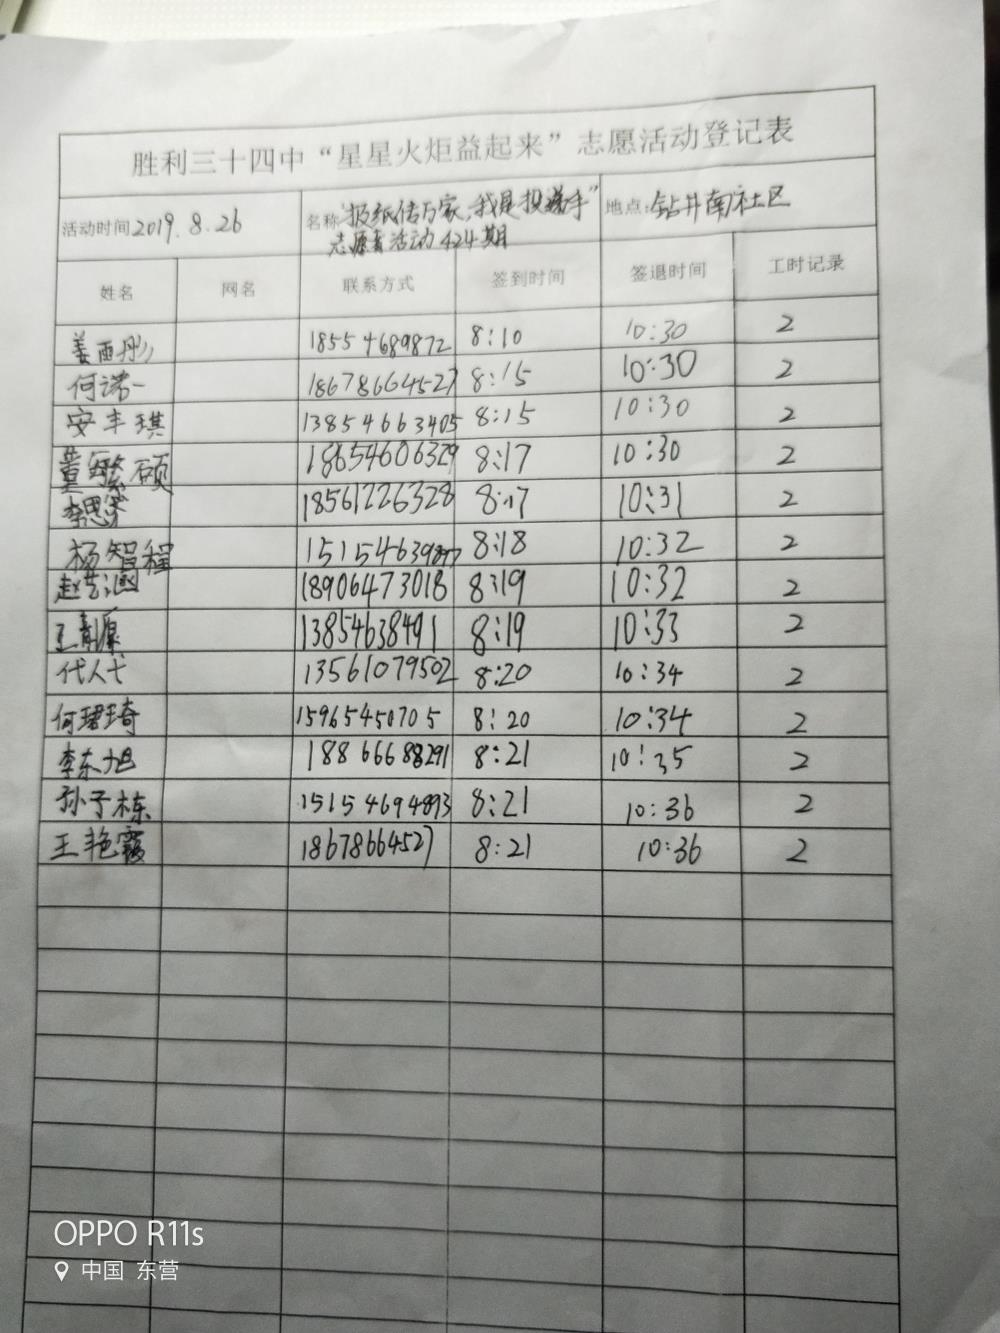 胜利三十四中“星星火炬益起来”志愿活动登记表
活动时间2019.8.26 名称“报纸传万家,我是投递手” 地点:钻井南社区
志愿者活动424期
姓名 网名 联系方式 签到时间 签退时间 工时记录
姜雨彤 18554689872 8:10 10:30 2
何诺一 18678664527 8:15 10:30 2
安丰琪 13854663405 8:15 10:30 2
董繁硕 18654606329 8:17 10:30 2
李思 18561226328 8:17 10:31 2
杨智程 8:18 10:32 2
赵艺涵 18906473018 8:19 10:32 2
王 13854638491 8:19 10:33 2
代人七 13561079502 8:20 10:34 2
何珺琦 15965450705 8:20 10:34 2
李东旭 18866688291 8:21 10:35 2
孙子栋 15154694893 8:21 10:36 2
王艳霞 18678664527 8:21 10:36 2
OPPO R11s
中国 东营